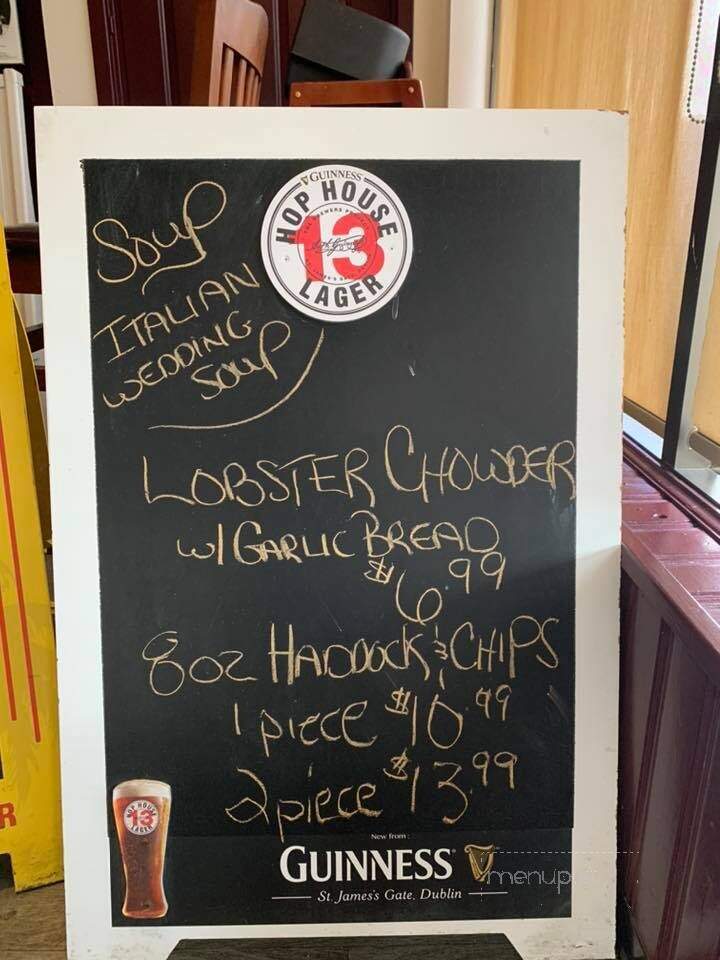 Soup
ITALIAN
WEDDING
Soup
GUINNESS
HOP HOUSE
13
LAGER
LOBSTER CHOWDER
w/ GARLIC BREAD
$6.99
8oz HADDOCK & CHIPS
1 piece $10.99
2 piece $13.99
HOP HOUSE
13
LAGER
New from:
GUINNESS
St. James's Gate. Dublin
R